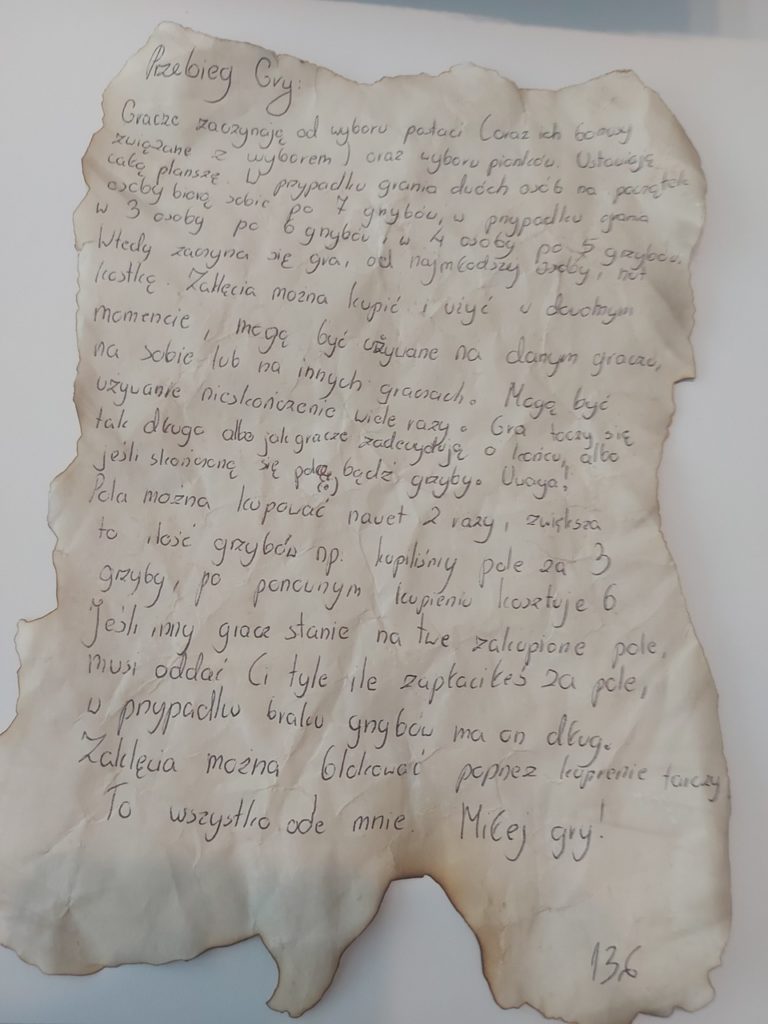 Przebieg Gry:
Gracze zaczynają od wyboru postaci (oraz ich bonusy
związane z wyborem) oraz wyboru pionków. Ustawiają
całą planszę. W przypadku grania dwóch osób na początek
osoby biorą sobie po 7 gnybów, w pnypadku grania
w 3 osoby po 6 gnybów i w 4 osoby po 5 grzybów.
Wtedy zaczyna się gra, od najmłodszy osoby, rzut
kostką. Zaklęcia można kupić i użyć w dowolnym
momencie, mogą być używane na danym graczu,
na sobie lub na innych graczach. Mogą być
używanie nieskończenie wiele razy. Gra toczy się
tak długo albo jak gracze zadecydują o końcu, albo
jeśli skończoną się pola bądź grzyby. Uwaga!
Pola można kupować nawet 2 razy, zwiększa
to ilość grzybów np. kupiliśmy pole za 3
grzyby, po ponownym kupieniu kosztuje 6
Jeśli inny gracz stanie na twe zakupione pole,
musi oddać Ci tyle ile zapłaciłeś za pole,
w pnypadku braku gnybów ma on dług.
Zaklęcia można blokować popnez kupienie tarczy
To wszystko ode mnie. Miłej gry!
136